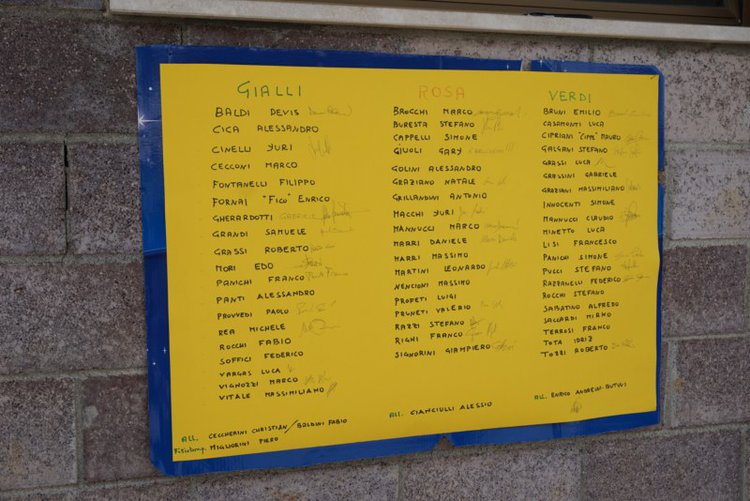 GIALLI
BALDI DEVIS
CICA ALESSANDRO
CINELLI YURI
CECCONI MARCO
FONTANELLI FILIPPO
FORNAI "FICO" ENRICO
GHERARDOTTI GABRIELE
GRANDI SAMUELE
GRASSI ROBERTO
MORI EDO
PANICHI FRANCO
PANTI ALESSANDRO
PROVVEDI PAOLO
REA MICHELE
ROCCHI FABIO
SOFFICI FEDERICO
VARGAS LUCA
VIGNOZZI MARCO
VITALE MASSIMILIANO
ALL. CECCHERINI CHRISTIAN/BOLDINI FABIO
MIGLIORINI PIERO
ROSA
BROCCHI MARCO
BURESTA STEFANO
CAPPELLI SIMONE
GIUOLI GARY
GOLINI ALESSANDRO
GRAZIANO NATALE
GRILLANDINI ANTONIO
MACCHI YURI
MANNUCCI MARCO
MARRI DANIELE
MARRI MASSIMO
MARTINI LEONARDO
NENCIONI MASSIMO
PROFETI LUIGI
PRUNETI VALERIO
RAZZI STEFANO
RIGHI FRANCO
SIGNORINI GIAMPIERO
ALL. CIANCIULLI ALESSIO
VERDI
BRUNI EMILIO
CASAMONTI LUCA
CIPRIANI "CIPPE" MAURO
GALGANI STEFANO
GRASSI LUCA
GRASSINI GABRIELE
GRAZIANI MASSIMILIANO
INNOCENTI SIMONE
MANNUCCI CLAUDIO
MINETTO LUCA
LISI FRANCESCO
PANICHI SIMONE
PUCCI STEFANO
RAZZANELLI FEDERICO
ROCCHI STEFANO
SABATINO ALFREDO
SACCARDI MIRKO
TERROSI FRANCO
TOTA IDRIZ
TOZZI ROBERTO
ALL. ENRICO ANDREINI-BUTINI